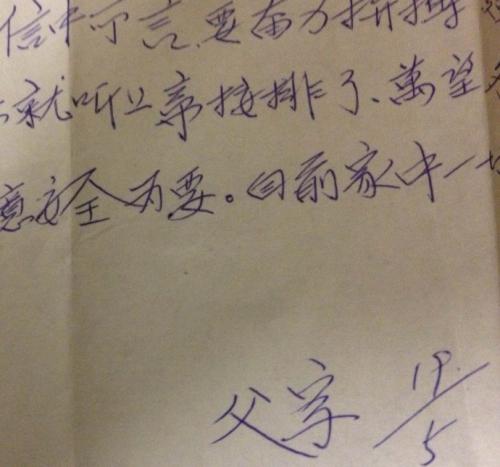 信中所言,要奋力拼搏
就听上帝按排了、萬望
意安全为要。目前家中一切
父字 19/5